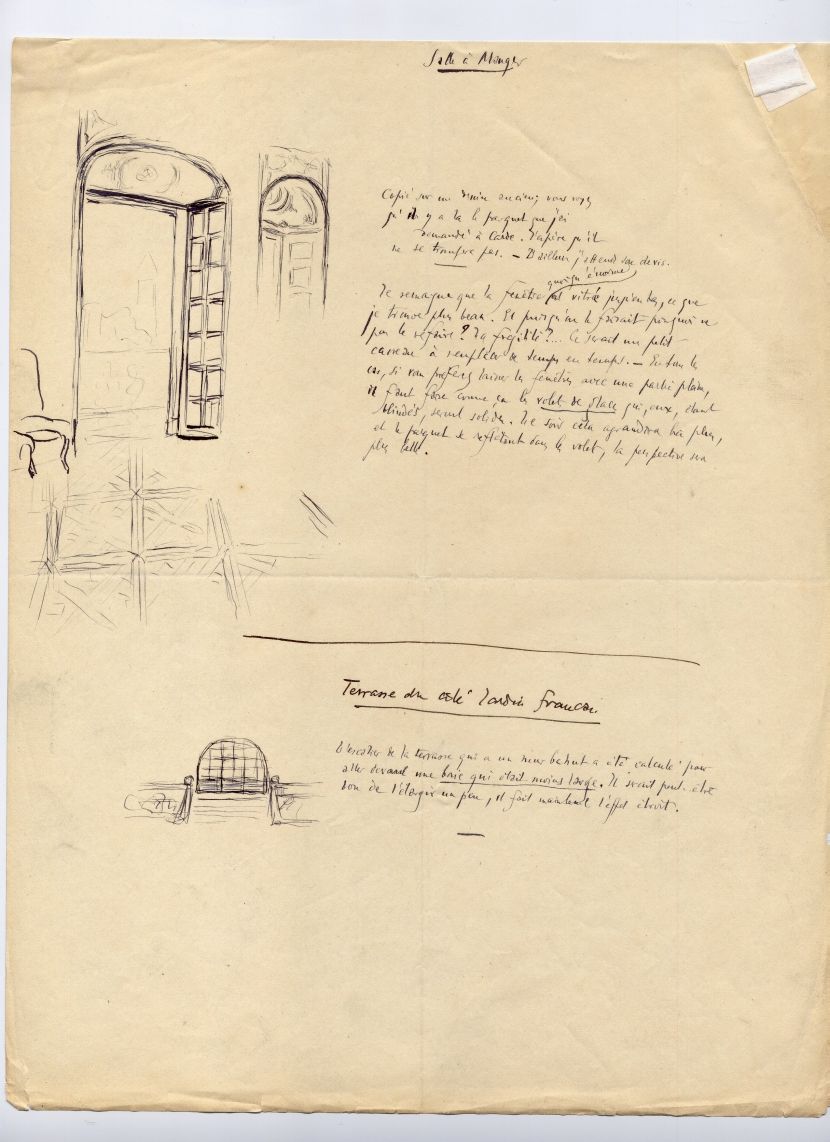 Salle à Manger
Copié sur un dessin ancien; vous voyez
qu'il y a là le parquet que j'ai
demandé à Carde. J'espère qu'il
ne se trompe pas. — D'ailleurs j'attends son devis.
quoiqu'énorme
Je remarque que la fenêtre est vitrée jusqu'en bas, ce que
je trouve plus beau. Et puisqu'on le faisait pourquoi ne
pas le refaire? La fragilité?... Ce serait un petit
carreau à remplacer de temps en temps. — En tous les
cas, si vous préférez laisser les fenêtres avec une partie pleine,
il faut faire comme ça les volets de glace qui, eux, étant
blindés, seront solides. Le soir cela agrandira la pièce,
et le parquet se reflétant dans le volet, la perspective sera
plus belle.
Terrasse du côté Jardin français
L'escalier de la terrasse qui a un mur bahut a été calculé pour
aller devant une baie qui était moins large. Il serait peut-être
bon de l'élargir un peu, il fait maintenant l'effet étroit.